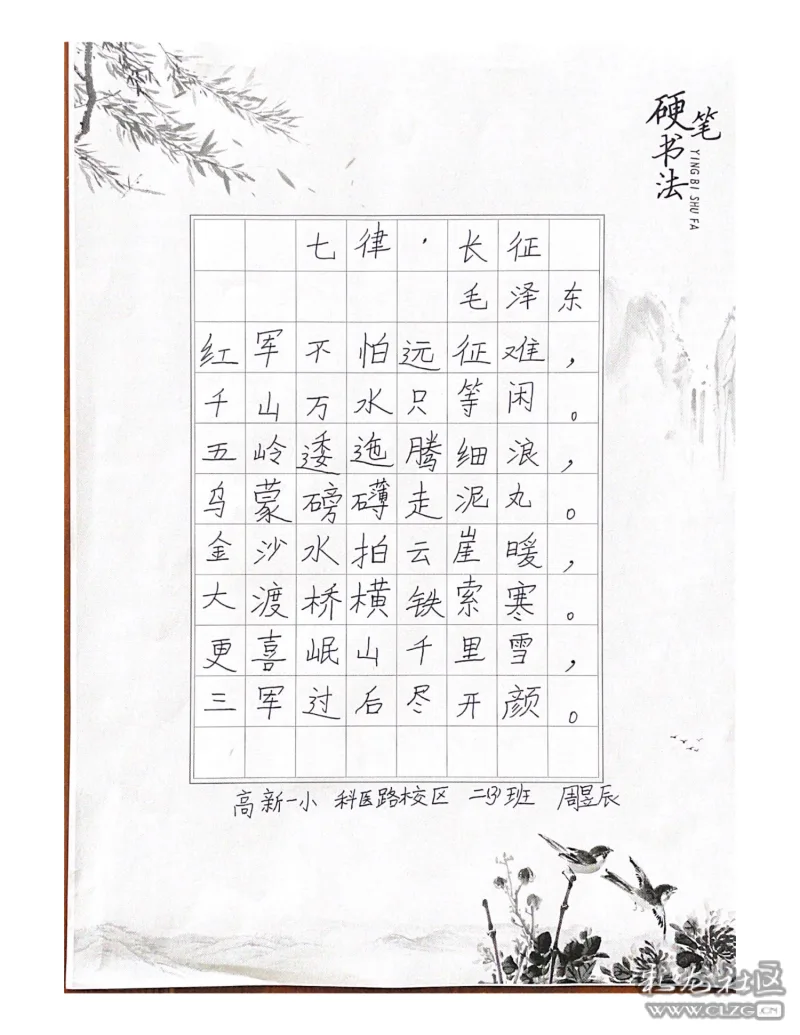 硬笔书法
YING BI SHU FA
七律·长征
毛泽东
红军不怕远征难，
千山万水只等闲。
五岭逶迤腾细浪，
乌蒙磅礴走泥丸。
金沙水拍云崖暖，
大渡桥横铁索寒。
更喜岷山千里雪，
三军过后尽开颜。
高新一小 科医路校区 二(3)班 周昱辰
WWW.CLZG.CN